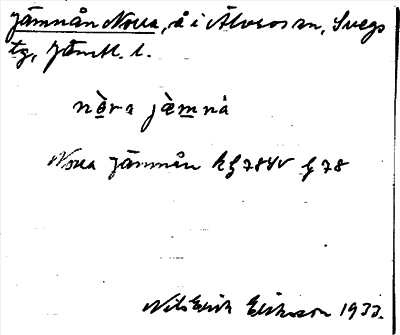 Jämnån Norra, å i Älvros sn, Svegs
tg, Jämtl. l.
nèra jèmnå
Norra Jämnån kg 78 NV g 78
Nils Erik Eriksson 1933.